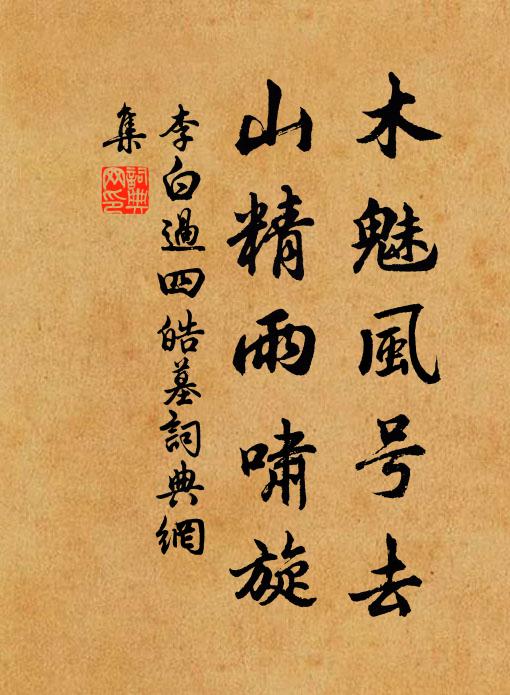 木魅風号去
山精雨啸旋
李白過四皓墓詞典網
集
詞典
网印